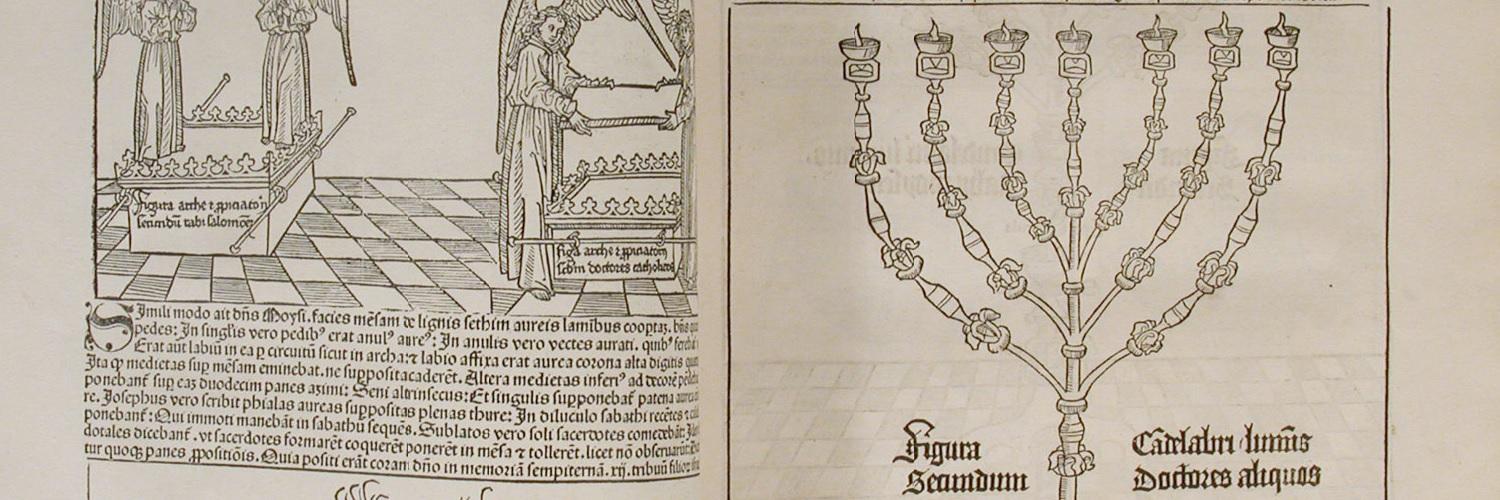 Figura arche ⁊ ꝓpiciatorij
secundū rabi salomonē
figa arche ⁊ ꝓpiciatorij
scḋm doctores catholicos
Simili modo ait dn̄s Moysi. facies mēsam de lignis sethim aureis lamibus coopta
pedes: In singl̓is vero pedibꝰ erat anulꝰ aureꝰ: In anulis vero vectes aurati. quibꝰ
Erat aūt labiū in ea ꝑ circuitū sicut in archa: ⁊ labio affixa erat aurea corona alta digitis
Ita ꝙ medietas suꝑ mēsam eminebat. ne supposita caderēt. Altera medietas inferiꝰ ad decorē
ponebant̄ suꝑ eaꝫ duodecim panes azimi: Seni altrinsecus: Et singulis supponebat̄ patena aurea
re. Josephus vero scribit phialas aureas suppositas plenas thure: In diluculo sabathi recētes ⁊
ponebant̄: Qui immoti manebāt in sabathū sequēs. Sublatos vero soli sacerdotes comedebāt:
dotales dicebant̄. vt sacerdotes formarēt coquerēt ponerēt in mēsa ⁊ tollerēt. licet nō obseruarūt
tur quoqꝫ panes ꝓpositiōis. Quia positi erāt coram dn̄o in memoriā sempiternā. xij. tribuū filioꝝ
Figura Cādelabri luminis
Secundum Doctores aliquos